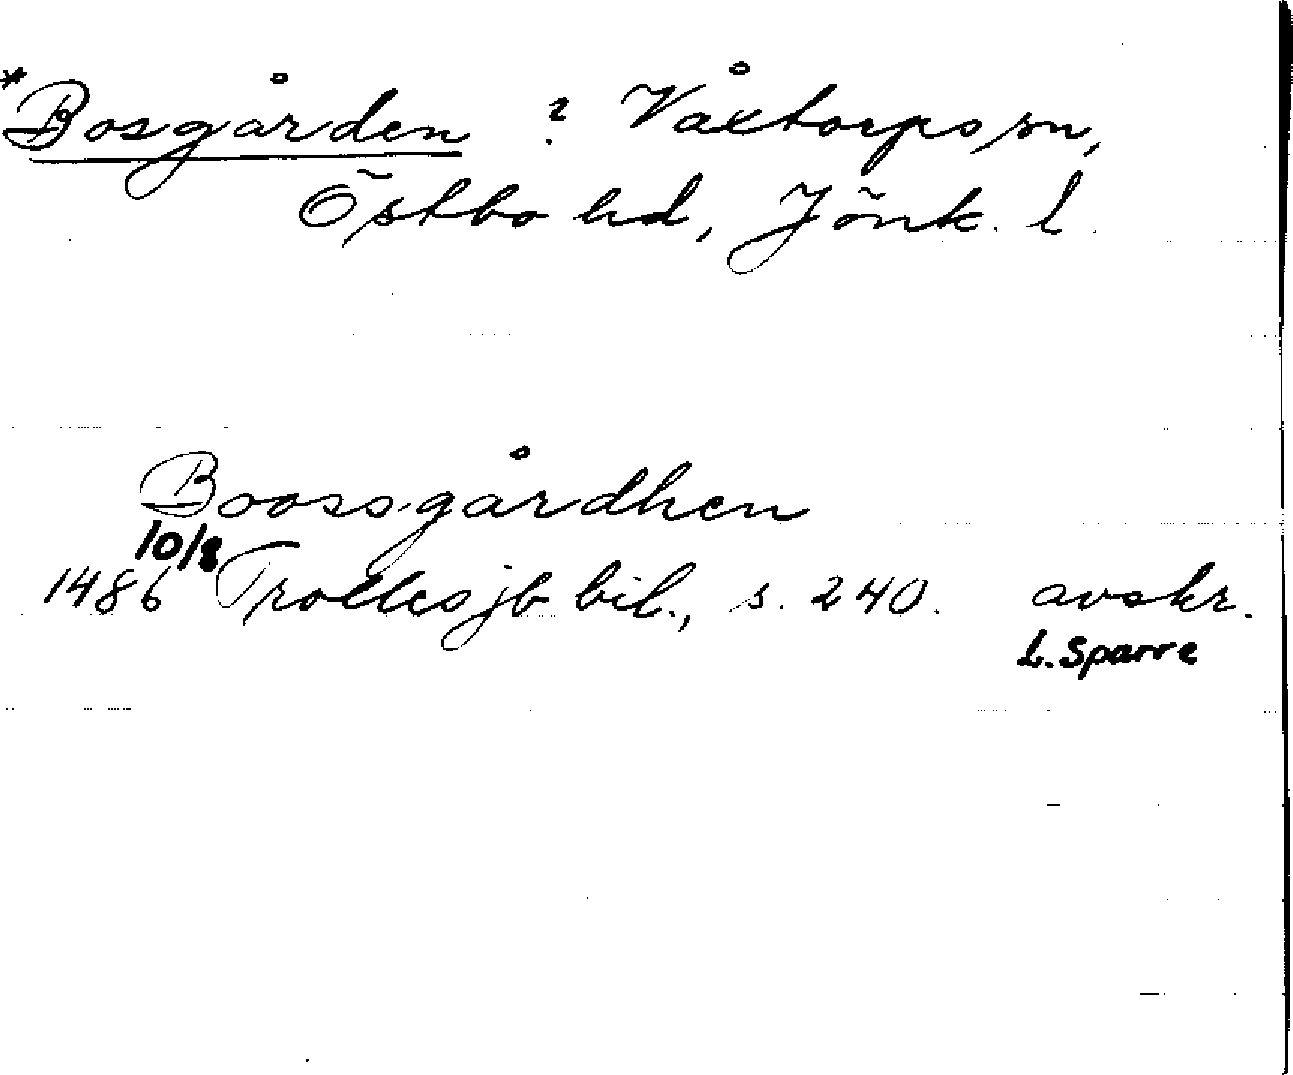 *Bosgården ? Våxtorps sn,
Östbo hd, Jönk. l.
Boossgårdhen
10/8
1486 Trolles jb bil., s. 240. avskr.
L. Sparre